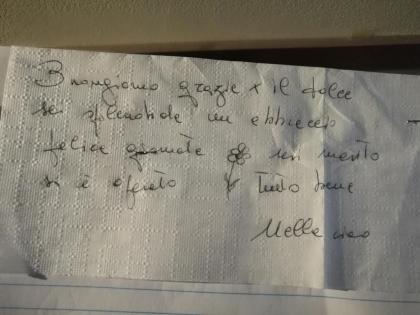 Buongiorno grazie x il dolce
sei splendida un abbraccio
felice giornata mio marito
si è operato tutto bene
ciao